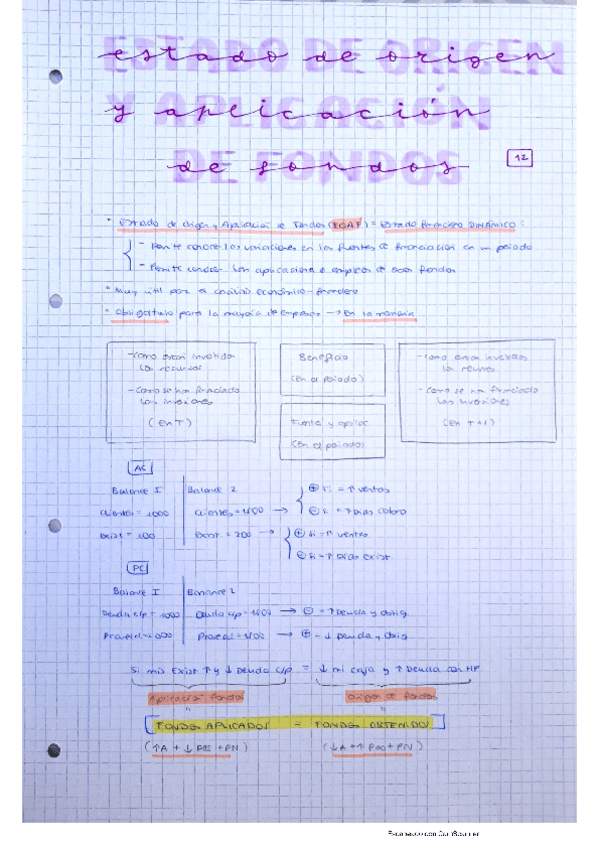 estado de origen
y aplicación
de fondos
12
* Estado de Origen y Aplicación de Fondos (EOAF) = Estado financiero DINÁMICO:
- Permite conocer las variaciones en las fuentes de financiación en un periodo
- Permite conocer las aplicaciones o empleos de esos fondos
* Muy útil para el análisis económico-financiero
* Obligatorio para la mayoría de empresas → en la memoria
- Como están invertidos
los recursos
- Como se han financiado
las inversiones
(En T)
Beneficio
(en el periodo)
Fuente y aplicac
(en el periodo)
- Como están invertidos
los recursos
- Como se han financiado
las inversiones
(En T+1)
AC
Balance 1 Balance 2
Clientes = 1000 Clientes = → ⊕ Si = ↑ ventas
⊖ Si = ↑ Dias cobro
Exist = 100 Exist. = 200 → ⊕ Si = ↑ ventas
⊖ Si = ↑ Dias exist
PC
Balance 1 Balance 2
Deuda c/p = 1000 Deuda c/p = → ⊖ = ↑ Deuda y oblig.
Proveed. = Proveed. = → ⊕ = ↓ Deuda y oblig
Si mis Exist ↑ y ↓ Deuda c/p = ↓ mi caja y ↑ Deuda con
Aplicación fondos Origen de fondos
FONDOS APLICADOS = FONDOS OBTENIDOS
(↑A + ↓ Pas + PN) (↓A + ↑ Pas + PN)
Escaneado con CamScanner